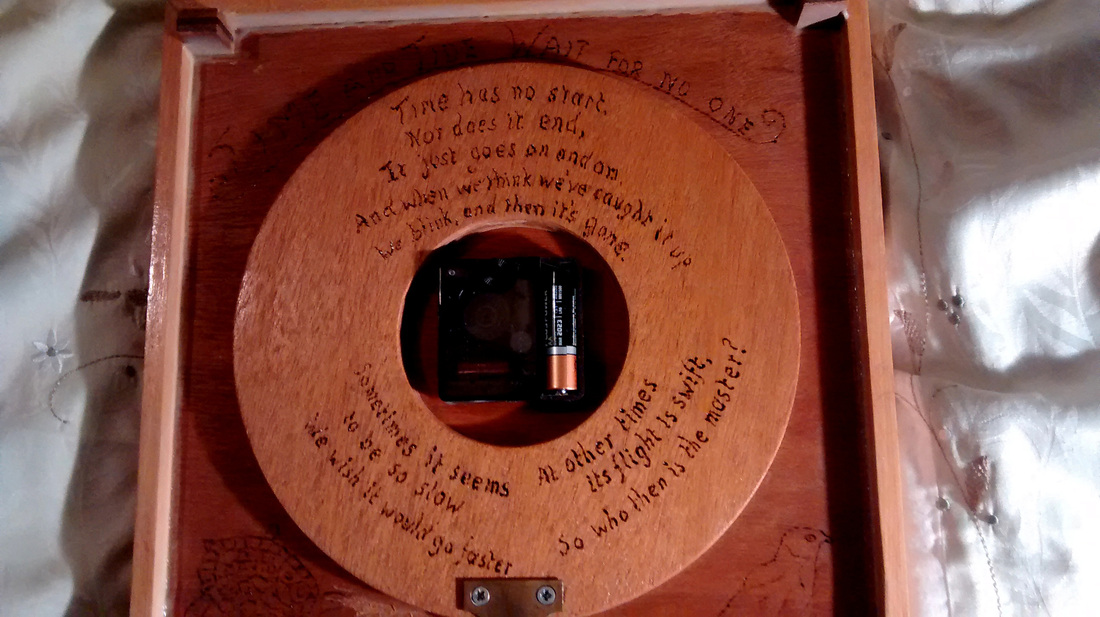 TIME AND TIDE WAIT FOR NO ONE
Time has no start.
Nor does it end,
It just goes on and on
And when we think we've caught it up
We blink, and then it's gone.
Sometimes it seems
to be so slow
We wish it would go faster
At other times
its flight is swift,
So who then is the master?
2023